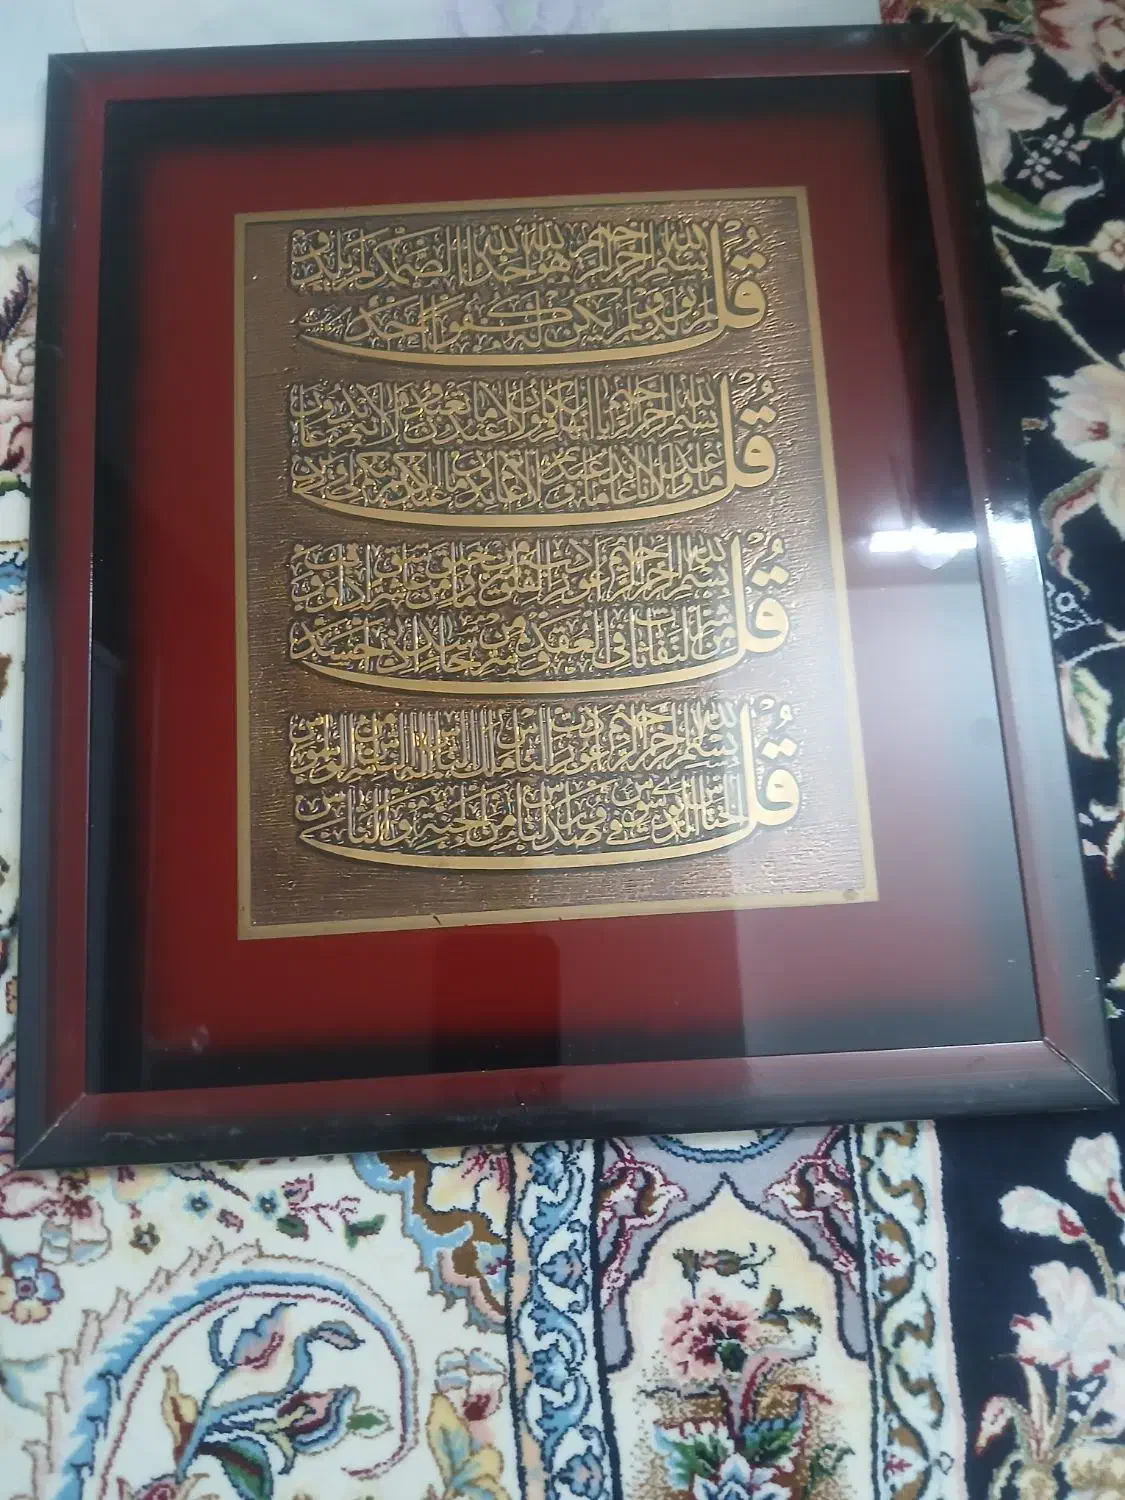 قُل
بسم الله الرحمن الرحيم هو الله احد الله الصمد لم يلد و
لم يولد ولم يكن له كفوا احد
قُل
بسم الله الرحمن الرحيم يا ايها الكافرون لا اعبد ما تعبدون ولا انتم عابدون
ما اعبد ولا انا عابد ما عبدتم ولا انتم عابدون ما اعبد لكم دينكم ولي دين
قُل
بسم الله الرحمن الرحيم اعوذ برب الفلق من شر ما خلق ومن شر غاسق اذا وقب و
من شر النفاثات في العقد ومن شر حاسد اذا حسد
قُل
بسم الله الرحمن الرحيم اعوذ برب الناس ملك الناس اله الناس من شر الوسواس
الخناس الذي يوسوس في صدور الناس من الجنة والناس